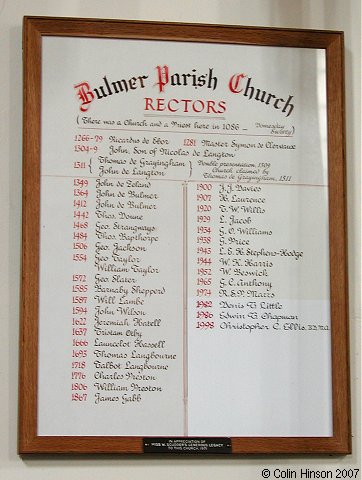 Bulmer Parish Church
RECTORS
(There was a Church and a Priest here in 1086 - Domesday Survey)
1266-79 Ricardus de Ebor 1281 Master Symon de Clervaux
1304-9 John, Son of Nicolas de Langton
1311 { Thomas de Grayingham
John de Langton } Double presentation, 1309
Church claimed by
Thomas de Grayingham, 1311
1349 John de Zoland
1364 John de Bulmer
1412 John de Bulmer
1442 Thos. Doune
1468 Geo. Strangways
1484 Thos. Bapthorpe
1506 Geo. Jackson
1554 Geo Taylor
William Taylor
1572 Geo. Slater
1585 Barnaby Shepperd
1587 Will Lambe
1594 John Wilson
1622 Jeremiah Hatell
1637 Tristam Oxby
1666 Launcelot Hassell
1693 Thomas Langbourne
1718 Talbot Langbourne
1776 Charles Preston
1806 William Preston
1867 James Gabb
1900 J.J. Davies
1907 H. Laurence
1920 T.W. Wills
1929 L. Jacob
1954 G.O. Williams
1938 G. Price
1943 L.E.H. Stephens-Hodge
1944 W.K. Harris
1952 W. Beswick
1965 G.C. Anthony
1974 R.E.P. Marrs
1982 Doris T. Little
1986 Edwin T. Chapman
1998 Christopher C. Ellis
IN APPRECIATION OF
TO THIS CHURCH, 1971
© Colin Hinson 2007